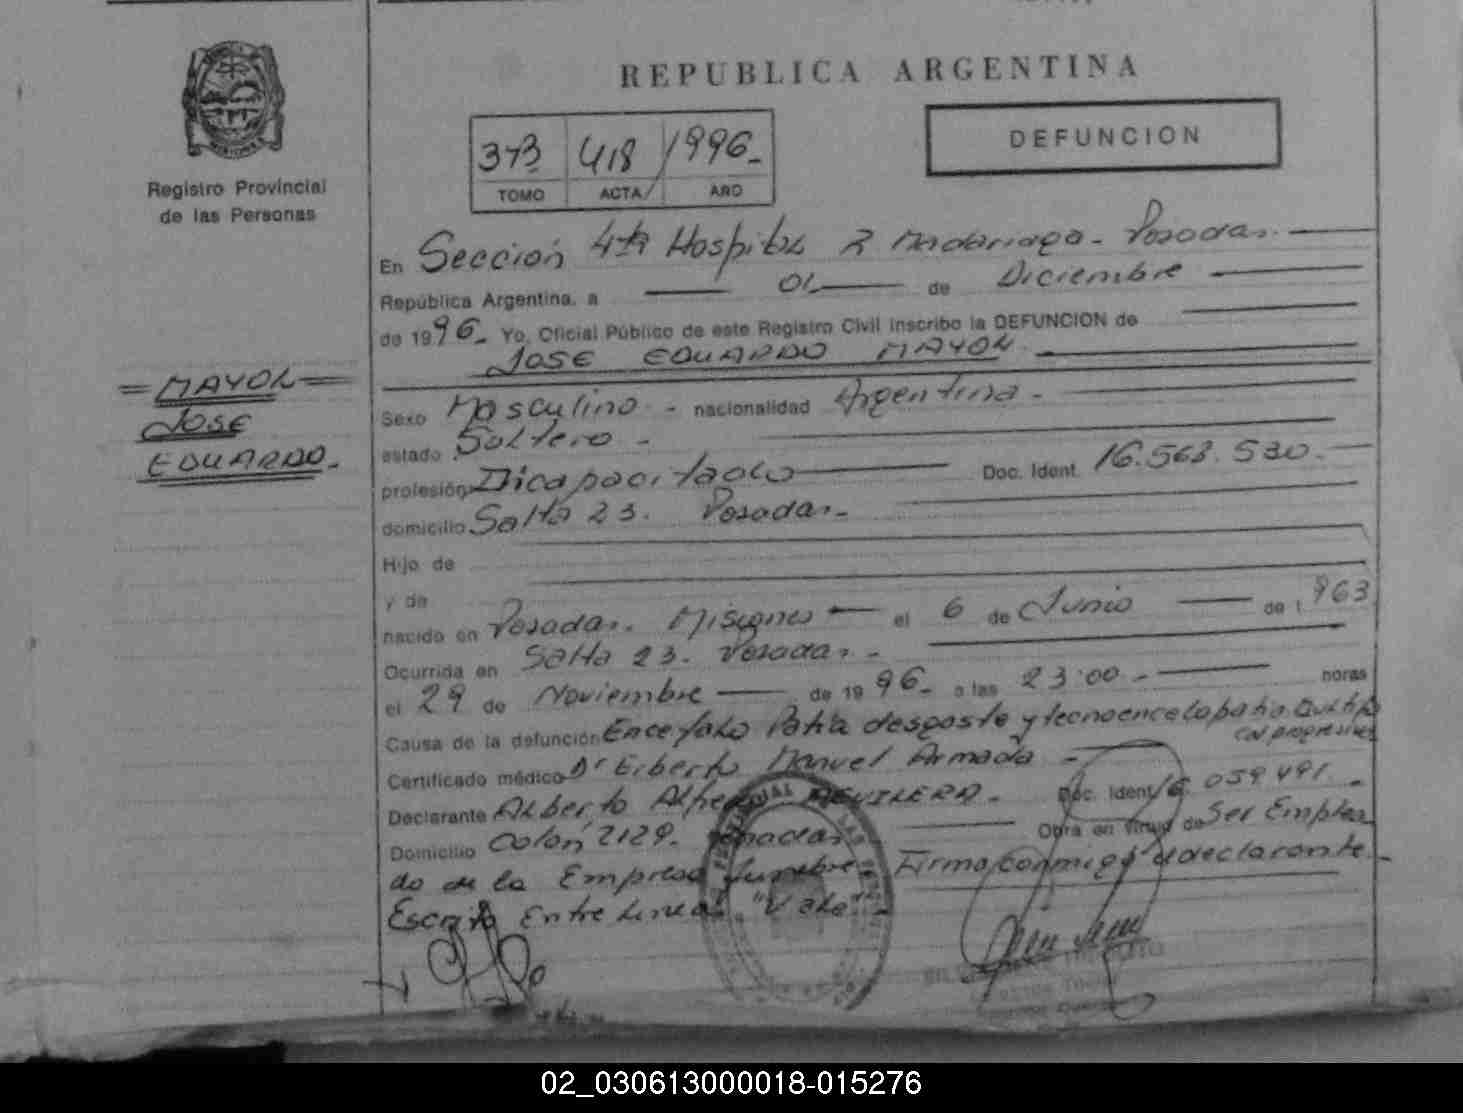 REPUBLICA ARGENTINA
Registro Provincial
de las Personas
373 418 1996_
TOMO ACTA AÑO
DEFUNCION
En Sección 4ta Hospital R Madariaga - Posadas.
República Argentina, a 01 de Diciembre
de 1996_ Yo, Oficial Público de este Registro Civil inscribo la DEFUNCION de
JOSE EDUARDO MAYOL
=MAYOL=
JOSE
EDUARDO_
Sexo Masculino - nacionalidad Argentina -
estado Soltero -
profesión Dicapacitado Doc. Ident. 16.563.530.-
domicilio Salta 23. Posadas.-
Hijo de
y de
nacido en Posadas. Misiones el 6 de Junio de 1963
Ocurrida en Salta 23. Posadas.-
el 29 de Noviembre de 1996_ a las 23:00.- horas
Causa de la defunción Encefalo Patia y
progresiva
Certificado médico Dr Manuel Armada -
Declarante Alberto Alfredo AGUILERA. Doc. Ident. 16.059.491.-
Domicilio Colón 2129. Posadas Obra en virtud de Ser Emplea
do de la Empresa Funebre Firma conmigo declarante.-
Escrito Entre Lineas. "Vale"-
02_030613000018-015276